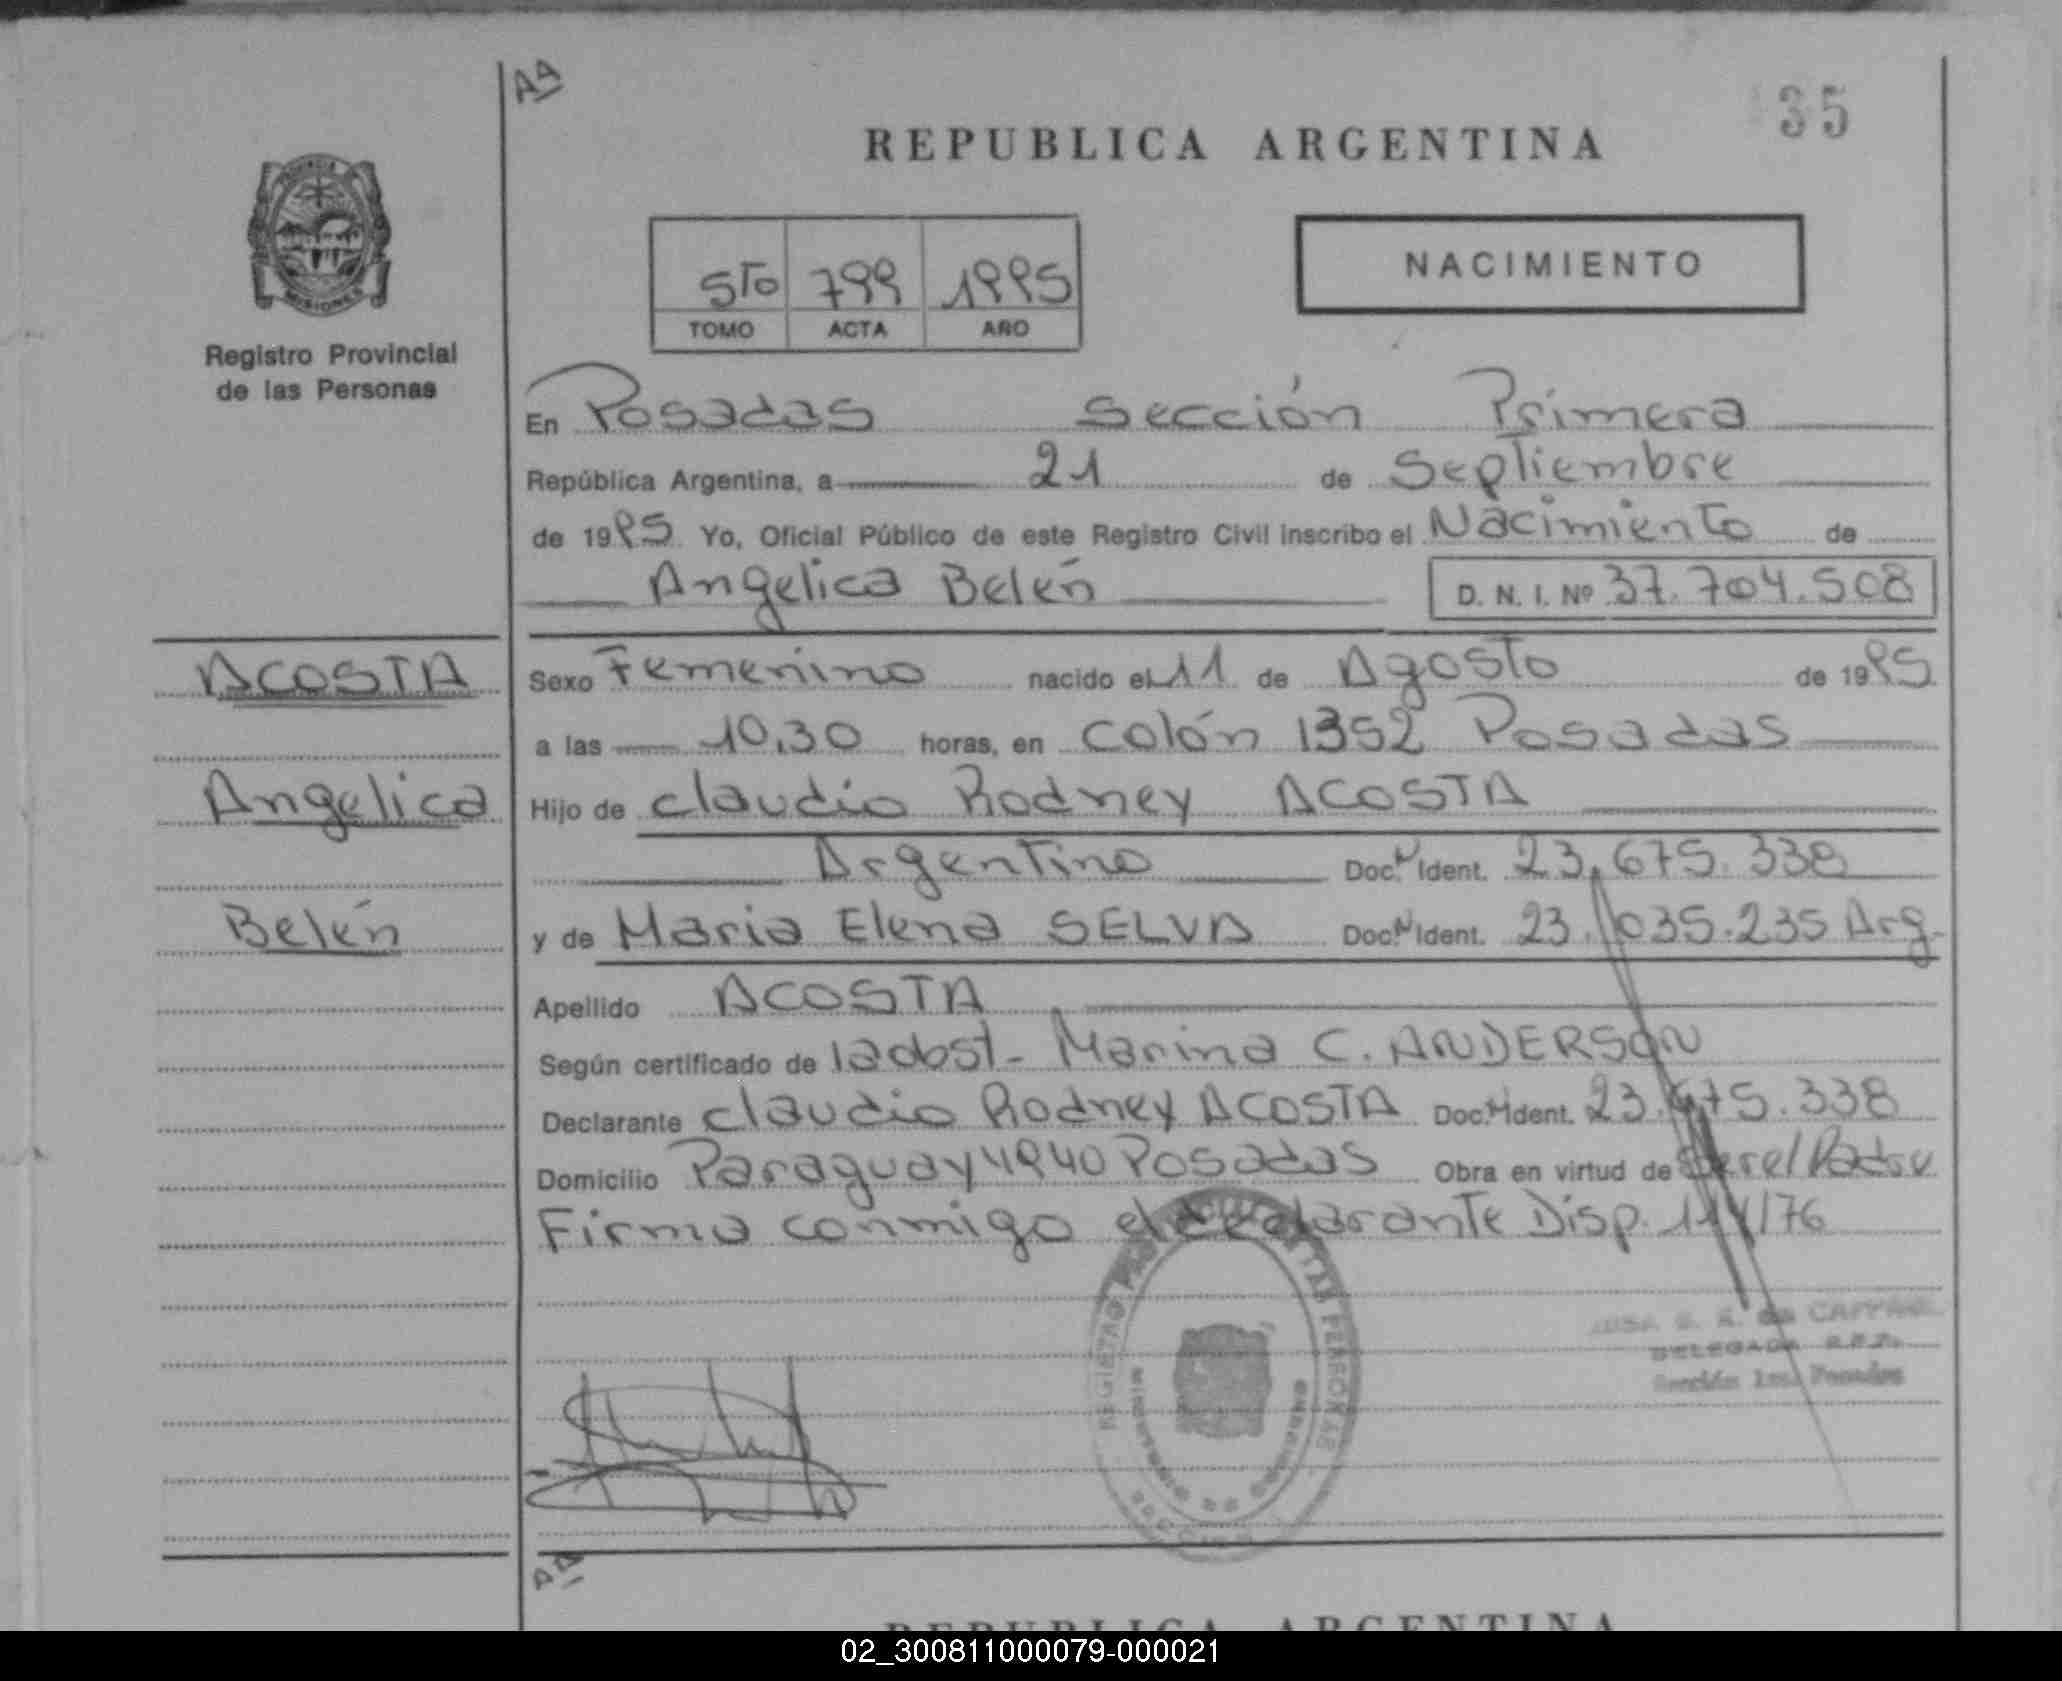 AA
35
REPUBLICA ARGENTINA
PROVINCIA
MISIONES
Registro Provincial
de las Personas
5To 799 1995
TOMO ACTA AÑO
NACIMIENTO
En Posadas Sección Primera
República Argentina, a 21 de Septiembre
de 1995 Yo, Oficial Público de este Registro Civil inscribo el Nacimiento de
Angelica Belén D. N. I. Nº 37.704.508
ACOSTA
Angelica
Belén
Sexo Femenino nacido el 11 de Agosto de 1995
a las 10,30 horas, en Colón 1352 Posadas
Hijo de Claudio Rodney ACOSTA
Argentino Doc. N Ident. 23.675.338
y de Maria Elena SELVA Doc. N Ident. 23.035.235 Arg.
Apellido ACOSTA
Según certificado de la obst- Marina C. ANDERSON
Declarante Claudio Rodney ACOSTA Doc. N Ident. 23.675.338
Domicilio Paraguay 4940 Posadas Obra en virtud de Ser el Padre
Firma conmigo el declarante Disp. 114/76
DELEGADA R.P.P.
Sección 1ra. Posadas
AA
REPUBLICA ARGENTINA
02_300811000079-000021